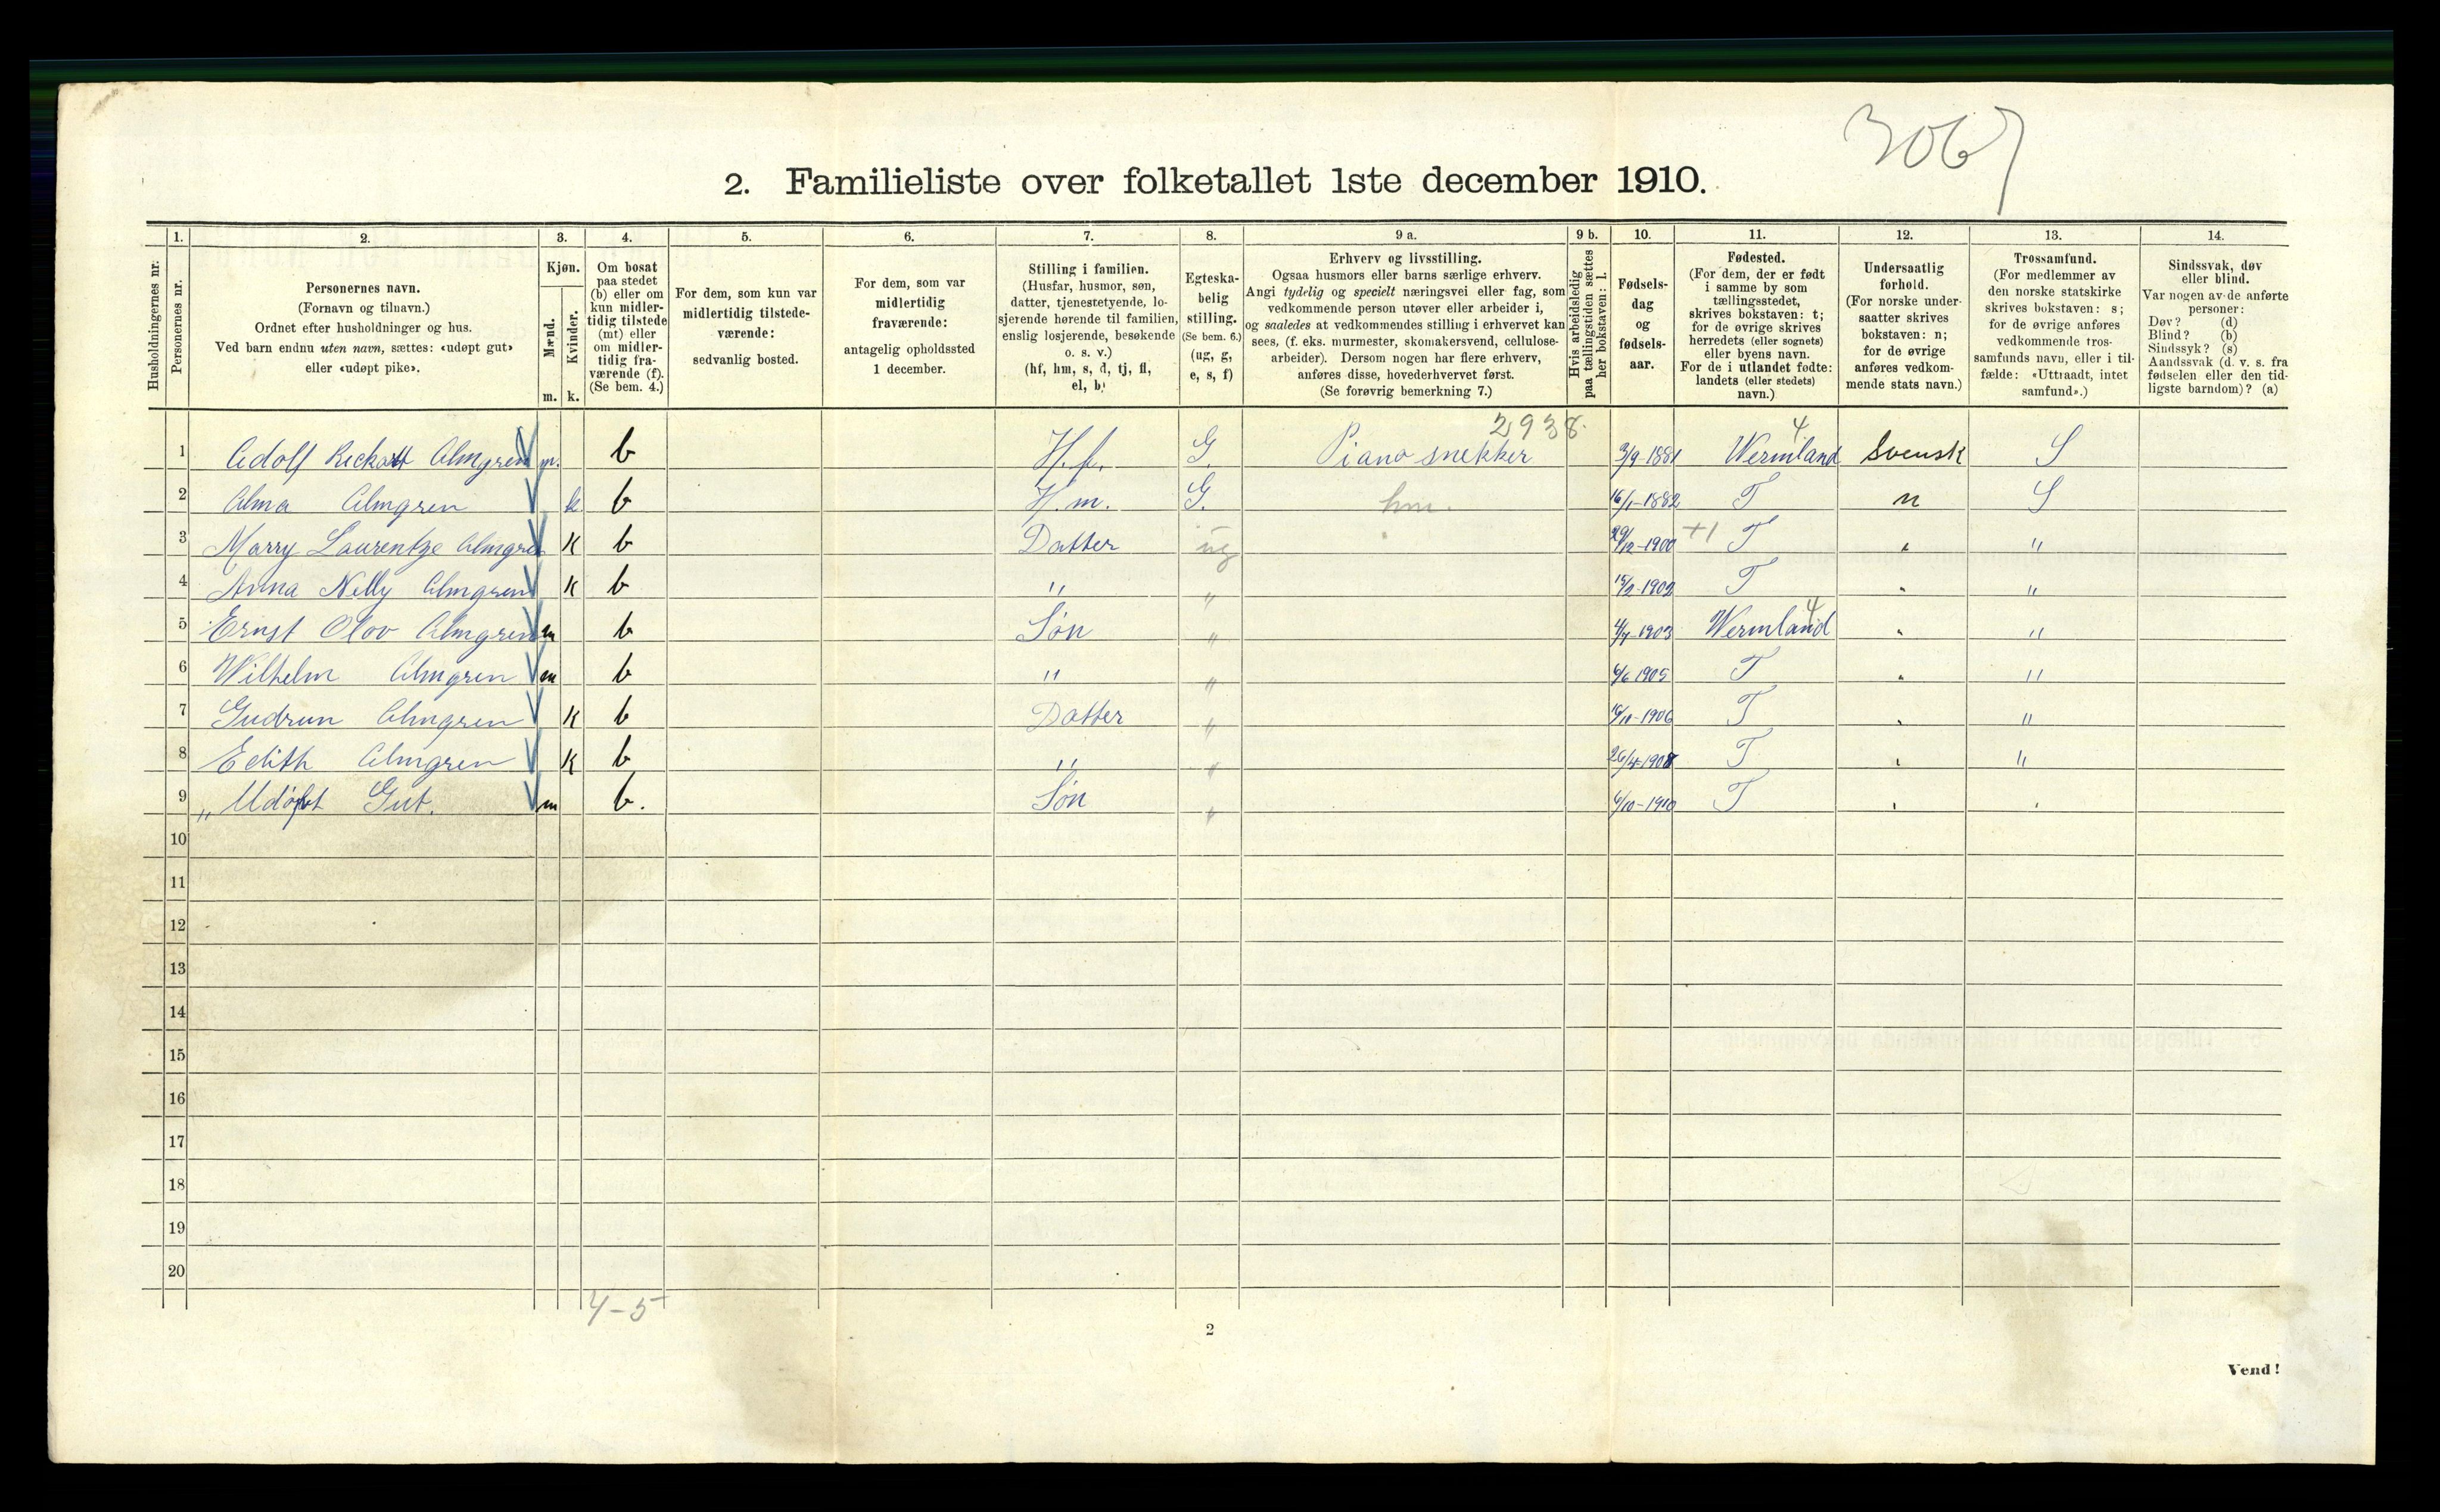 3067
2. Familieliste over folketallet 1ste december 1910.
1. 2. 3. 4. 5. 6. 7. 8. 9 a. 9 b. 10. 11. 12. 13. 14.
Husholdningernes nr.
Personernes nr.
Personernes navn.
(Fornavn og tilnavn.)
Ordnet efter husholdninger og hus.
Ved barn endnu uten navn, sættes: «udøpt gut»
eller «udøpt pike».
Kjøn.
Mænd.
Kvinder.
m. k.
Om bosat
paa stedet
(b) eller om
kun midler-
tidig tilstede
(mt) eller
om midler-
tidig fra-
værende (f).
(Se bem. 4.)
For dem, som kun var
midlertidig tilstede-
værende:
sedvanlig bosted.
For dem, som var
midlertidig
fraværende:
antagelig opholdssted
1 december.
Stilling i familien.
(Husfar, husmor, søn,
datter, tjenestetyende, lo-
sjerende hørende til familien,
enslig losjerende, besøkende
o. s. v.)
(hf, hm, s, d, tj, fl,
el, b)
Egteska-
belig
stilling.
(Se bem. 6.)
(ug, g,
e, s, f)
Erhverv og livsstilling.
Ogsaa husmors eller barns særlige erhverv.
Angi tydelig og specielt næringsvei eller fag, som
vedkommende person utøver eller arbeider i,
og saaledes at vedkommendes stilling i erhvervet kan
sees, (f. eks. murmester, skomakersvend, cellulose-
arbeider). Dersom nogen har flere erhverv,
anføres disse, hovederhvervet først.
(Se forøvrig bemerkning 7.)
Hvis arbeidsledig
paa tællingstiden sættes
her bokstaven: l.
Fødsels-
dag
og
fødsels-
aar.
Fødested.
(For dem, der er født
i samme by som
tællingsstedet,
skrives bokstaven: t;
for de øvrige skrives
herredets (eller sognets)
eller byens navn.
For de i utlandet fødte:
landets (eller stedets)
navn.)
Undersaatlig
forhold.
(For norske under-
saatter skrives
bokstaven: n;
for de øvrige
anføres vedkom-
mende stats navn.)
Trossamfund.
(For medlemmer av
den norske statskirke
skrives bokstaven: s;
for de øvrige anføres
vedkommende tros-
samfunds navn, eller i til-
fælde: «Uttraadt, intet
samfund».)
Sindssvak, døv
eller blind.
Var nogen av de anførte
personer:
Døv? (d)
Blind? (b)
Sindssyk? (s)
Aandssvak (d. v. s. fra
fødselen eller den tid-
ligste barndom)? (a)
2938. 4
1 Adolf Rickatt Almgren m. b H.f. G. Piano snekker 3/9-1881 Wermland Svensk S
2 Alma Almgren k b H.m. G. hm. 16/1-1882 T n S
3 Marry Laurentze Almgren K b Datter ug 29/12-1900 +1 T " "
4 Anna Nelly Almgren K b " " 15/2-1902 T " "
5 Ernst Olov Almgren m b Søn " 4/7-1903 Wermland 4 " "
6 Wilhelm Almgren m b " " 6/6 1905 T " "
7 Gudrun Almgren K b Datter " 16/11-1906 T " "
8 Edith Almgren K b " " 26/4-1908 T " "
9 „ Udøbt Gut. m b. Søn " 6/10-1910 T " "
10
11
12
13
14
15
16
17
18
19
20
4-5
2
Vend!